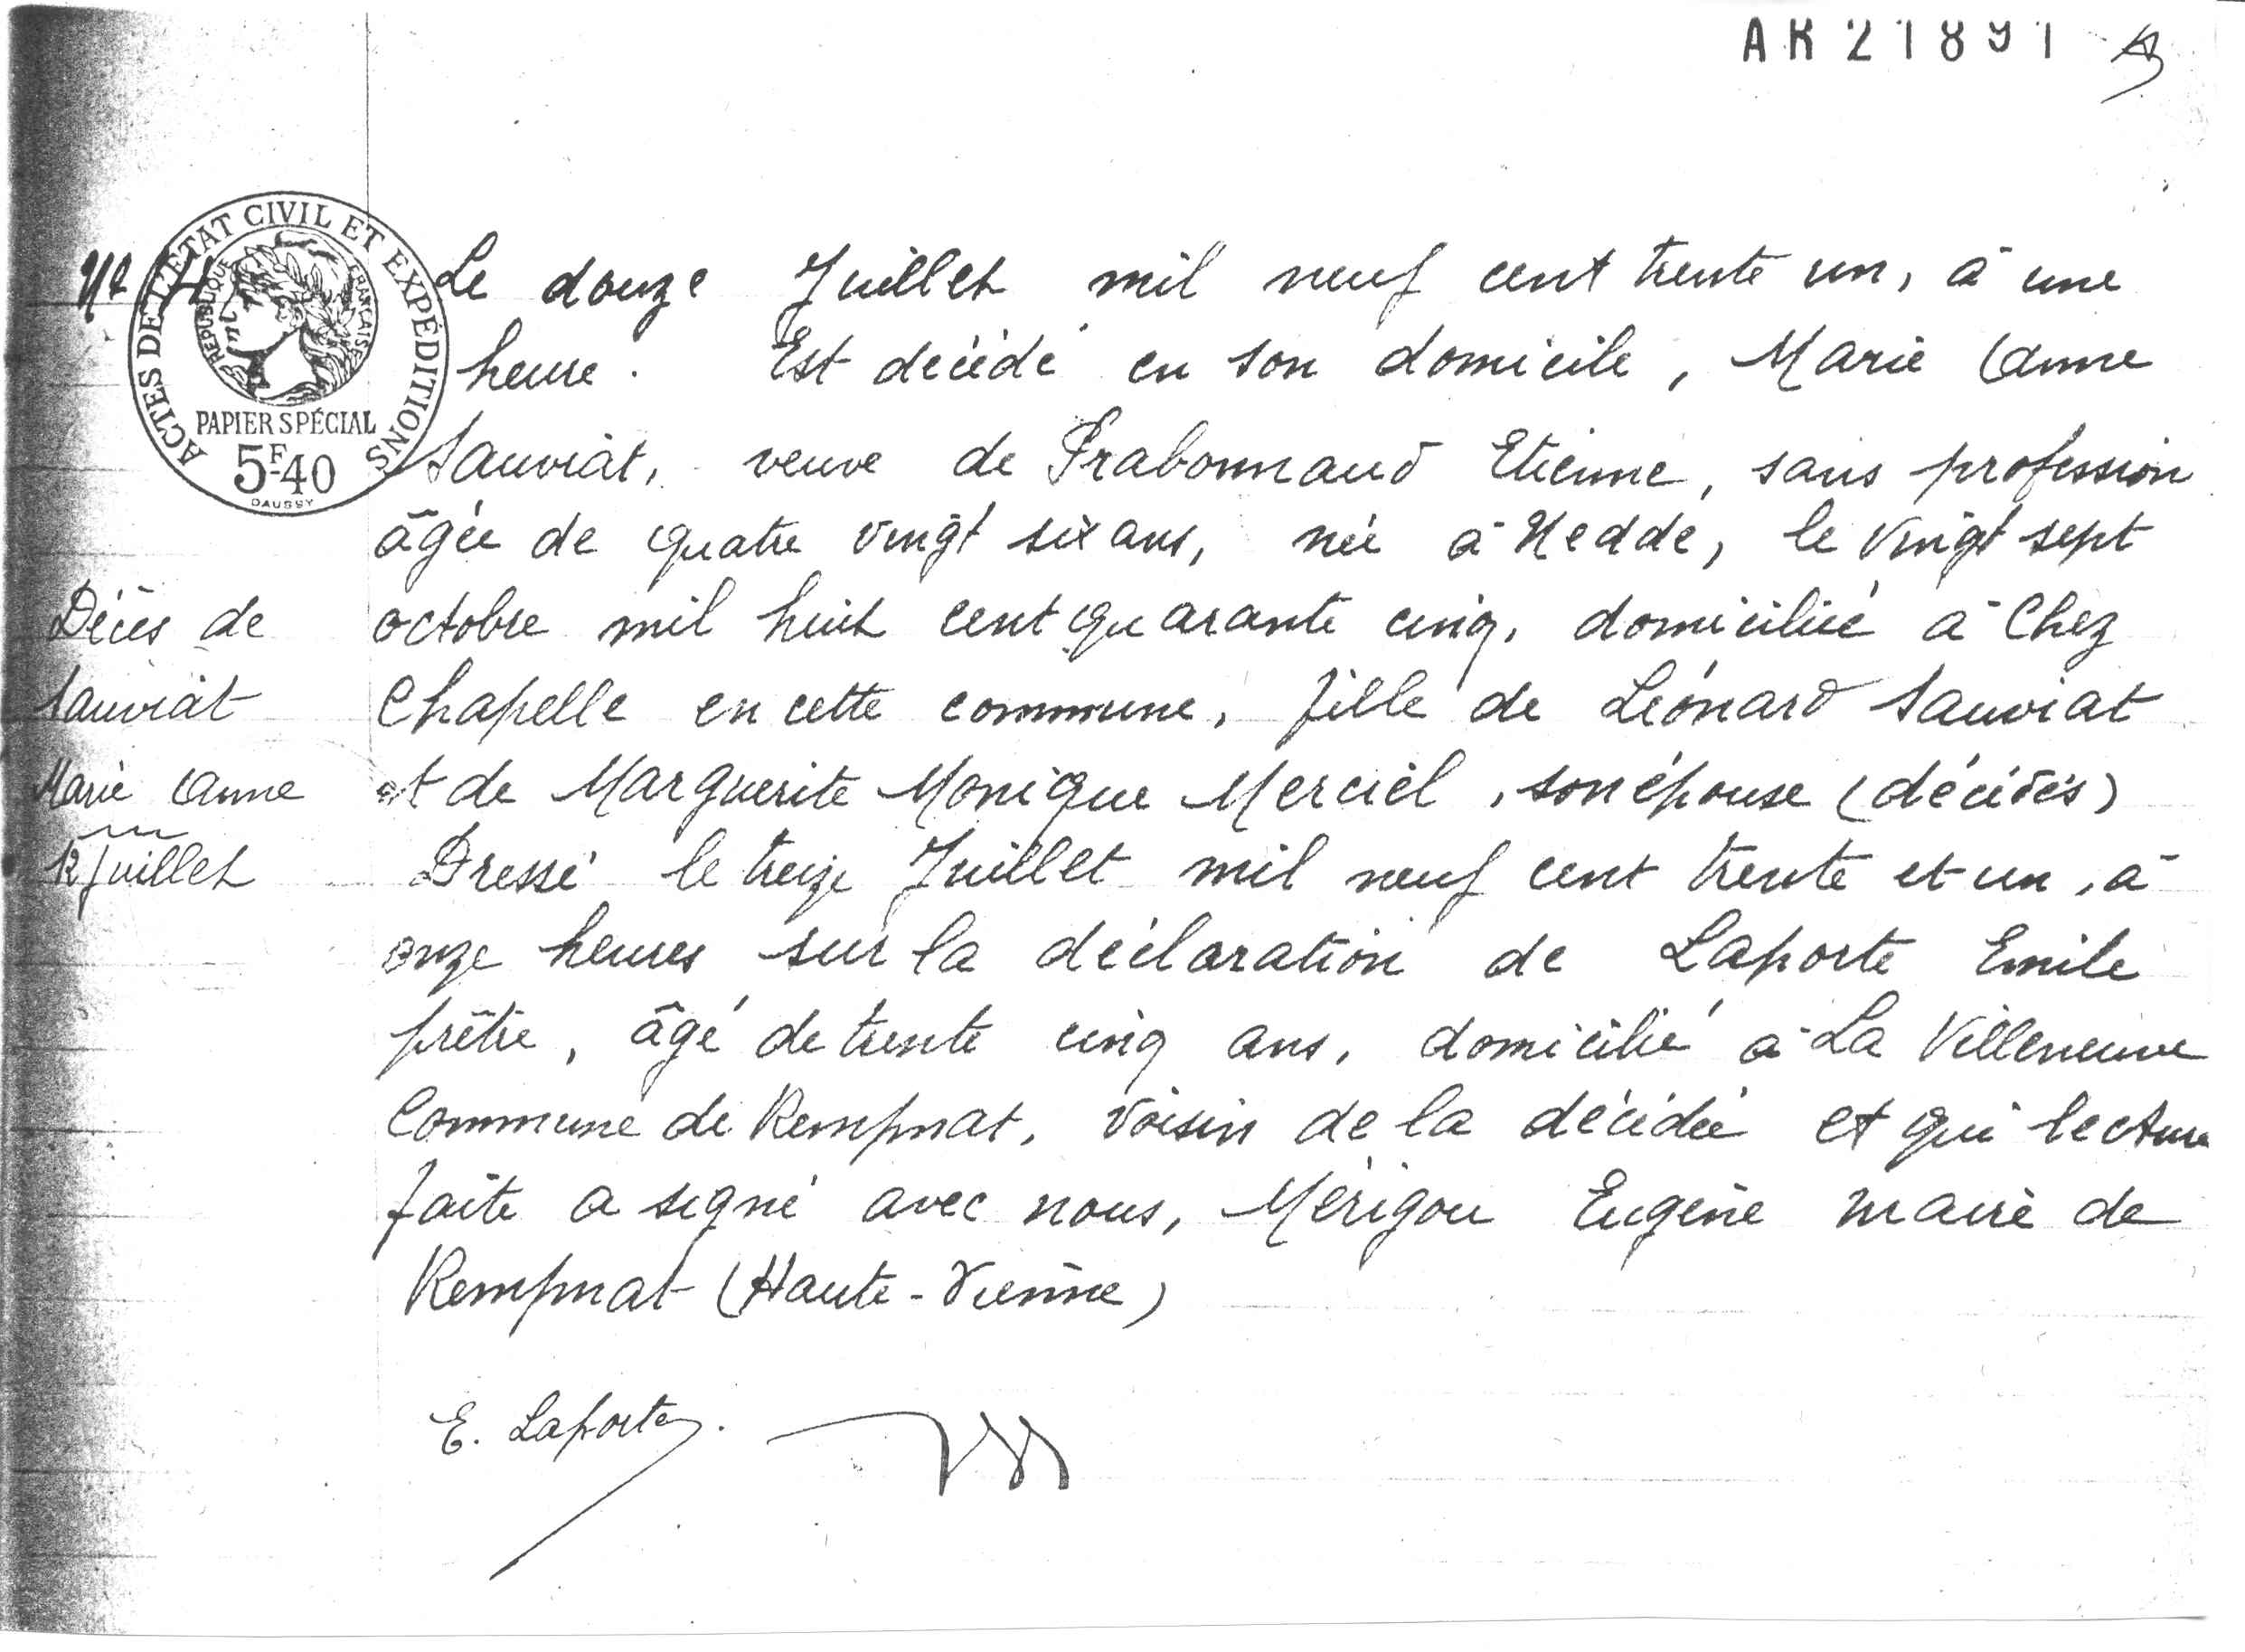 AR 21891
ACTES DE L'ETAT CIVIL ET EXPÉDITIONS
RÉPUBLIQUE FRANÇAISE
PAPIER SPÉCIAL
5F40
DAUSSY
Le douze Juillet mil neuf cent trente un, à une
heure. Est décédé en son domicile, Marie Anne
Sauviat, veuve de Frabonnaud Etienne, sans profession
âgée de quatre vingt six ans, née à Nedde, le vingt sept
octobre mil huit cent quarante cinq, domiciliée à Chez
Chapelle en cette commune, fille de Léonard Sauviat
et de Marguerite Monique Merciel, son épouse (décédés)
Dressé le treize Juillet mil neuf cent trente et un, à
onze heures sur la déclaration de Laporte Emile
prêtre, âgé de trente cinq ans, domicilié à La Villeneuve
Commune de Rempnat, voisin de la décédée et qui lecture
faite a signé avec nous, Mérigou Eugène maire de
Rempnat (Haute-Vienne)
Décès de
Sauviat
Marie Anne
12 Juillet
E. Laporte.